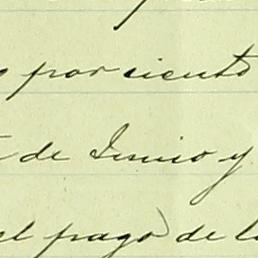 por ciento
de Junio y
el pago de